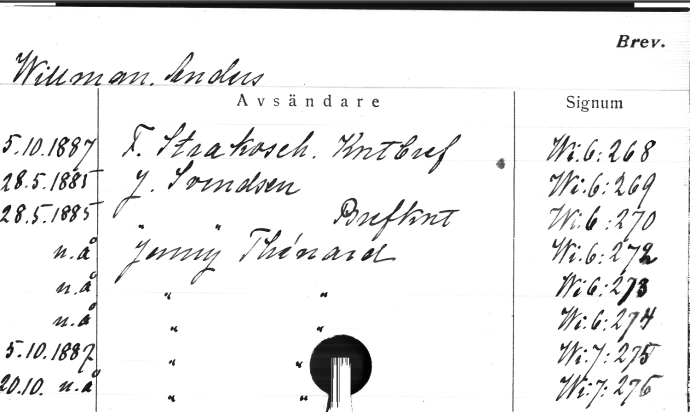 Brev.
Willman. Anders
Avsändare Signum
5.10.1887 F. Strakosch. Kntbref Wi.6:268
28.5.1885 J. Svendsen Wi.6:269
28.5.1885 " " Brefknt Wi.6:270
n.å Jenny Thénard Wi.6:272
n.å " " Wi.6:273
n.å " " Wi.6:274
5.10.1887 " " Wi.7:275
20.10. n.å " " Wi.7:276